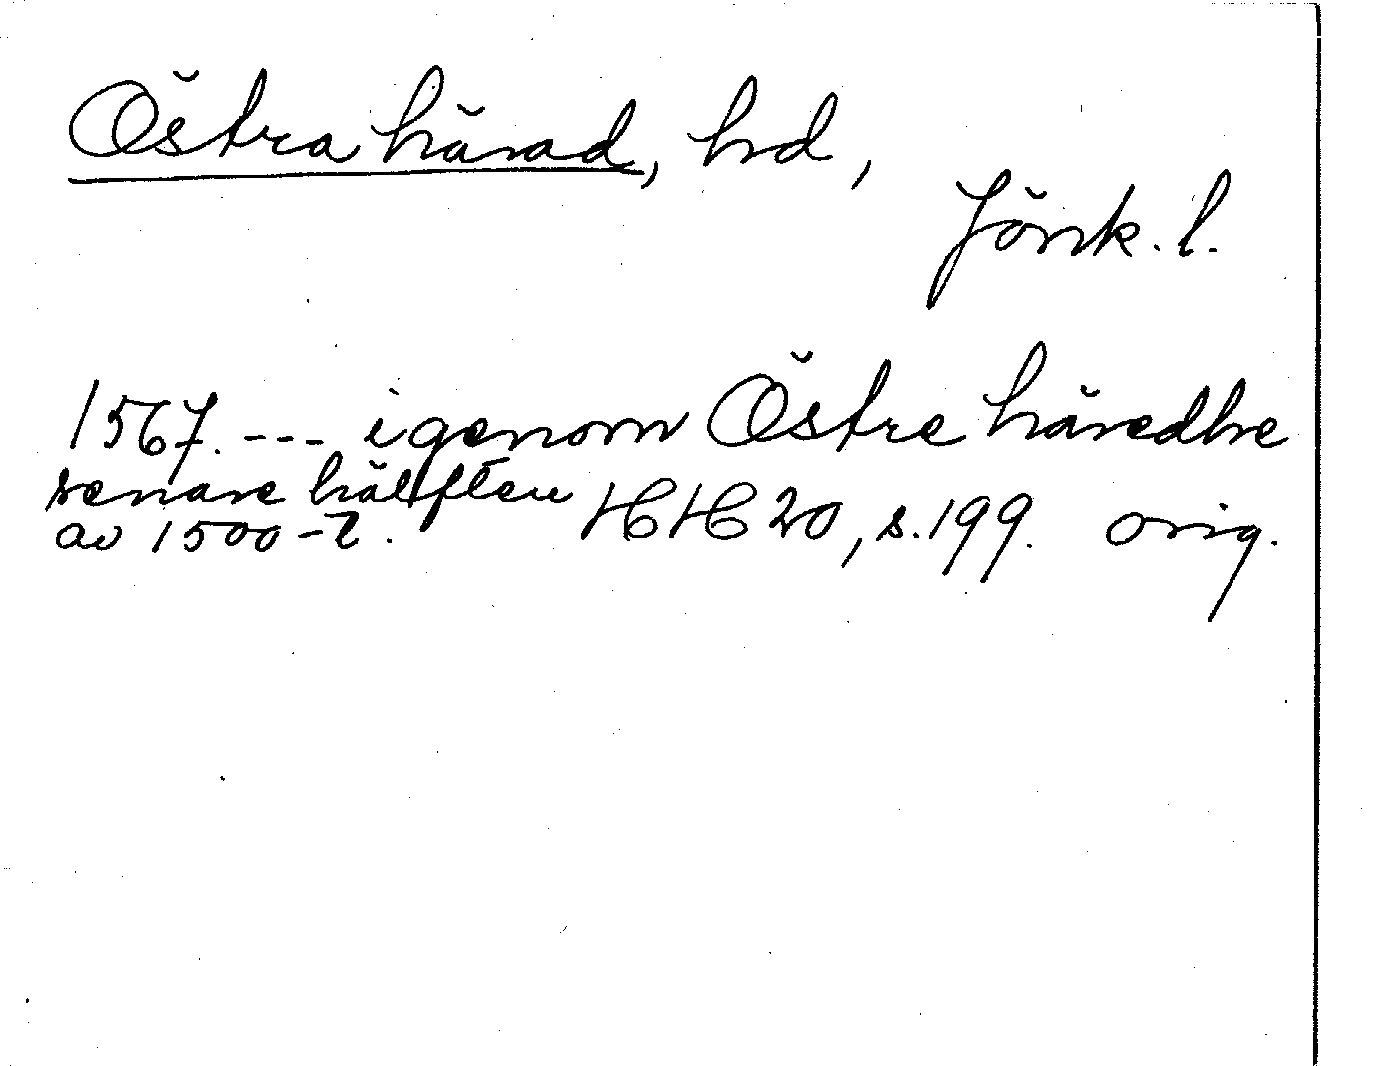 Östra härad, hrd,
Jönk. l.
1567. --- igenom Östre häredhe
senare hälften
av 1500-t. HH 20, s. 199. orig.